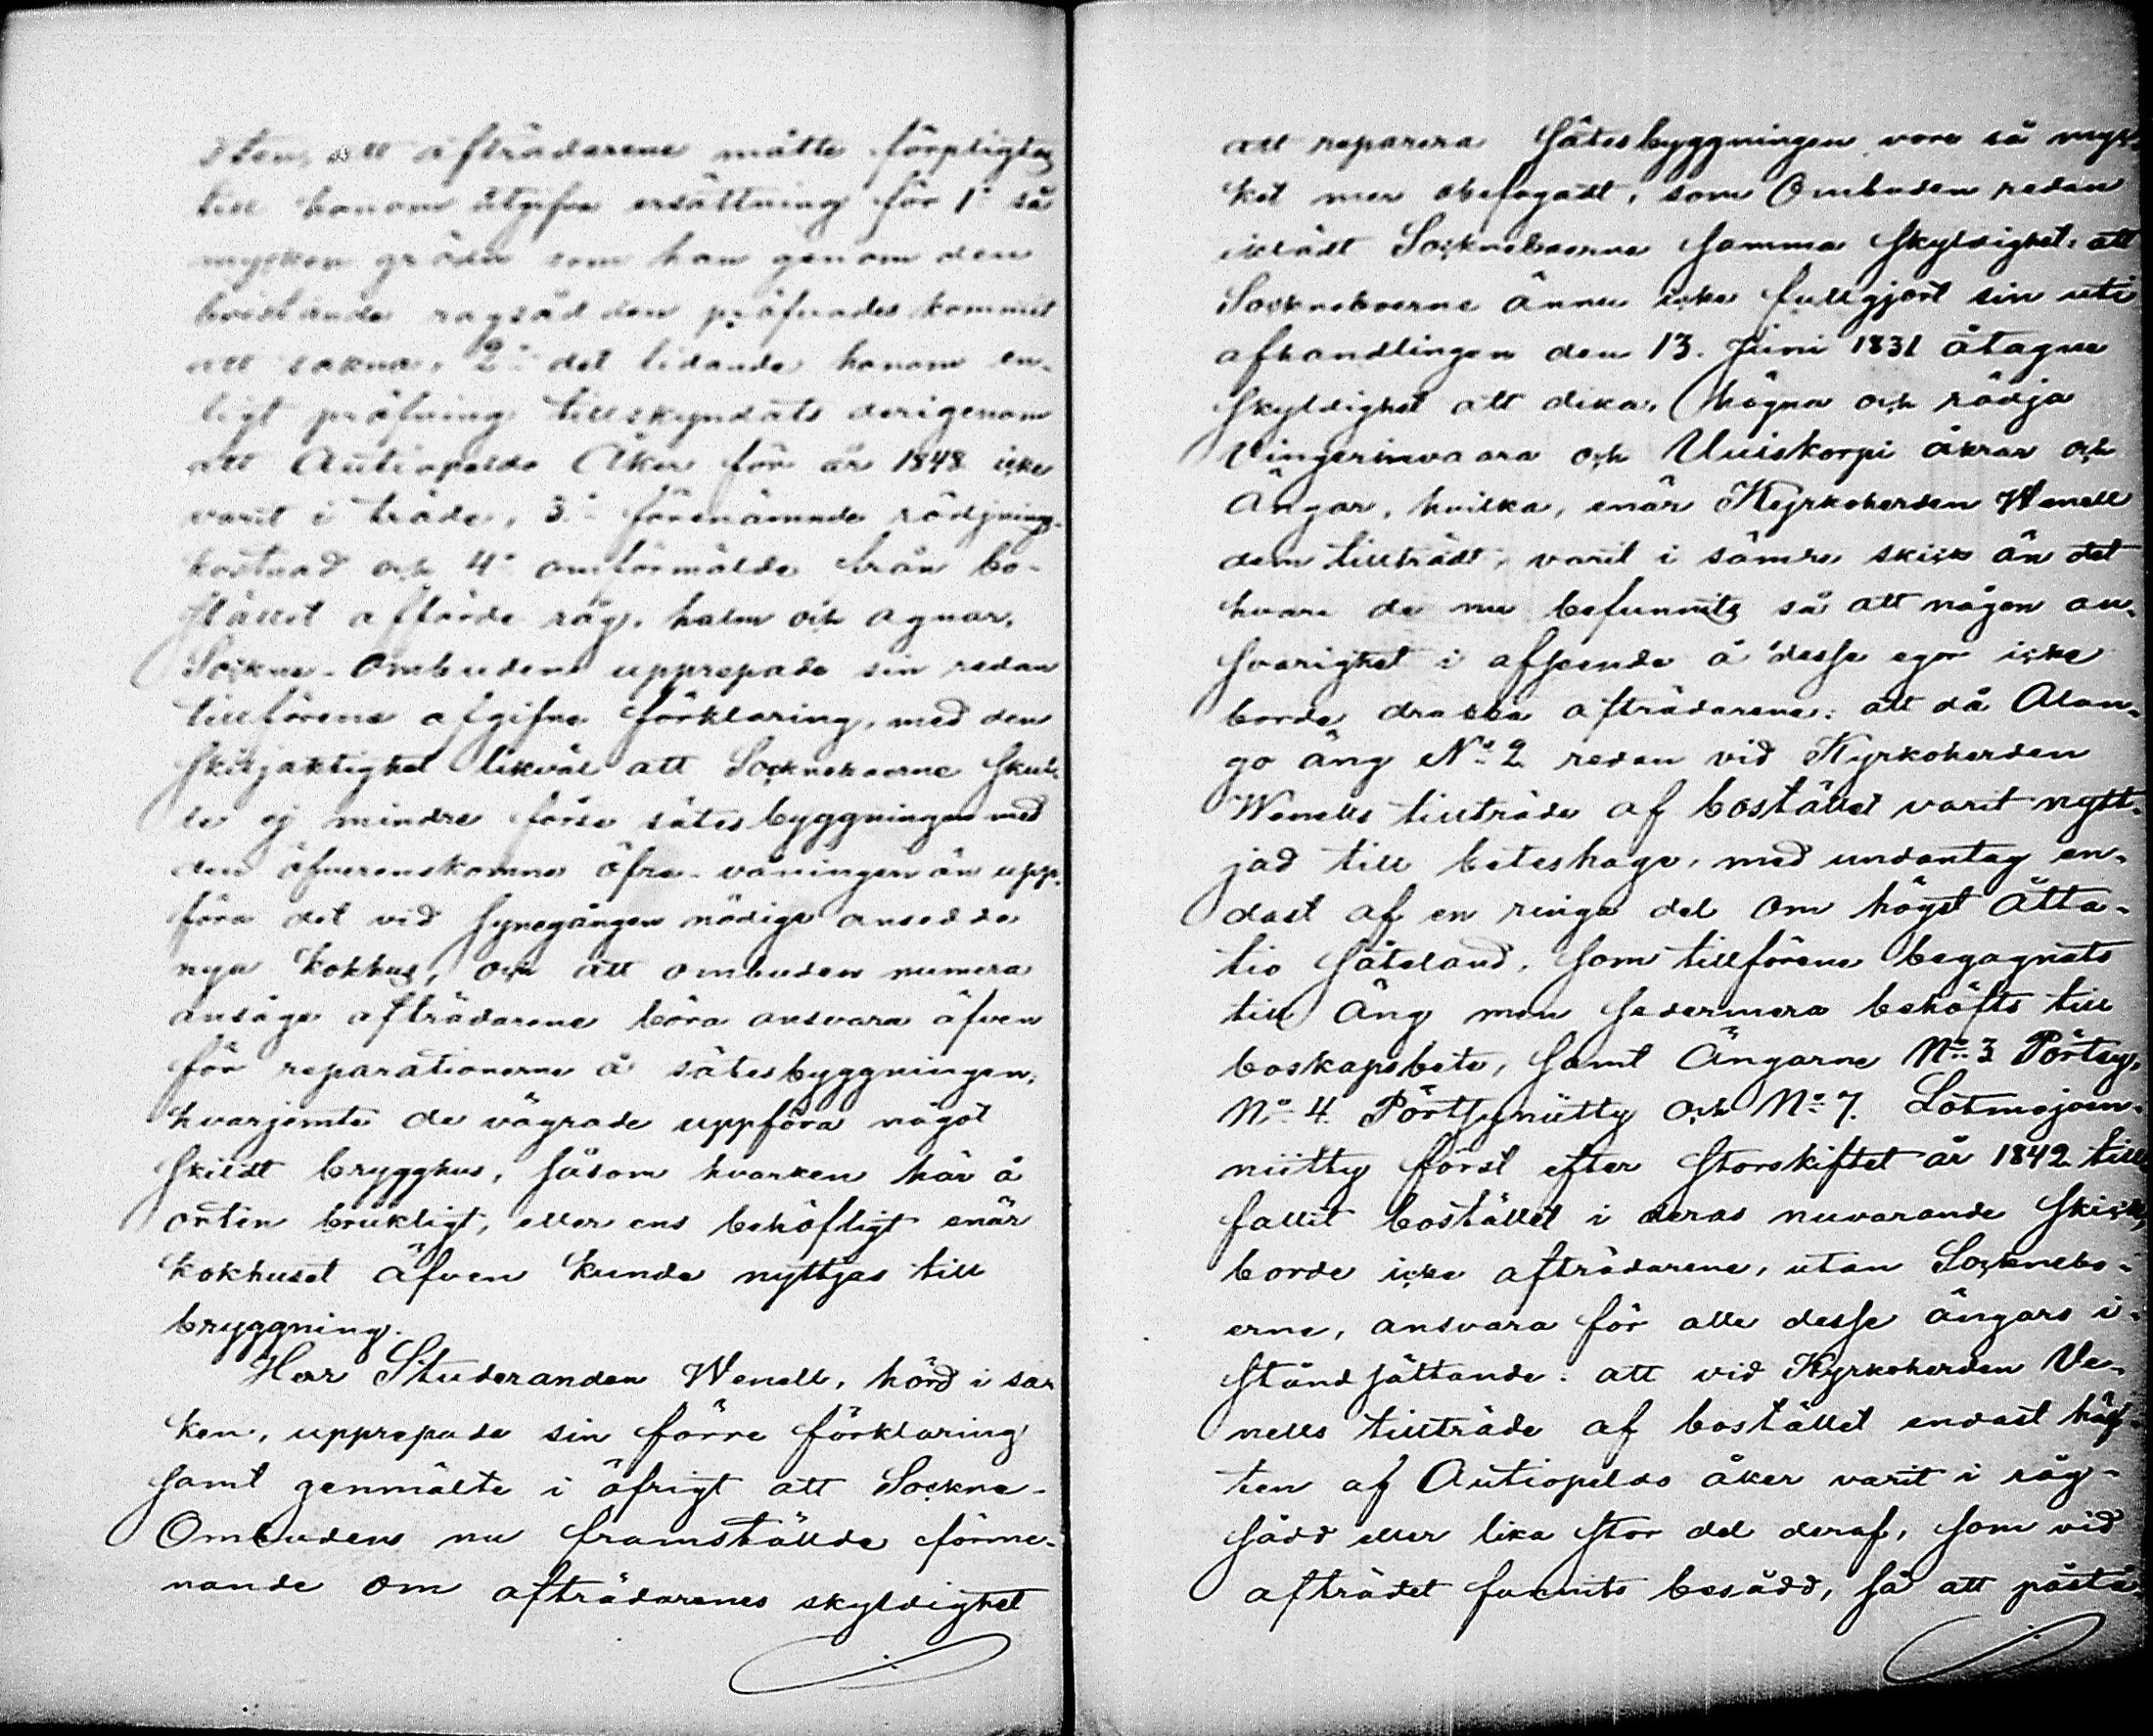 att afträdarene måtte förpligtas
till honom utgifva ersättning för 1:o så
mycken gröda som han genom den
bristande rågsådden pröfvades kommit
att sakna, 2:o det lidande honom en-
ligt pröfning tillskyndats derigenom
att Autiopeldo Åker för år 1848 icke
varit i träde, 3:o förenämnde rödjnings-
kostnad och 4:o omförmälde från bo-
stället afförde råg, halm och agnar.
Sockne-Ombuden upprepade sin redan
tillförene afgifna förklaring, med den
skiljaktighet likväl att Sockneboerne skul-
le ej mindre förse sätesbyggningen med
den öfverenskomne öfre-våningen än upp-
föra det vid Synegången nödigt ansedda
nya kokhus, och att ombuden numera
ansågo afträdarene böra ansvara äfven
för reparationerne å sätesbyggningen,
hvarjemte de vägrade uppföra något
skildt brygghus, såsom hvarken här å
orten brukligt, eller ens behöfligt enär
kokhuset äfven kunde nyttjas till
bryggning.
Herr Studeranden Wenell, hörd i sa-
ken, upprepade sin förre förklaring
samt genmälte i öfrigt att Sockne-
Ombudens nu framställde förme-
nande om afträdarenes skyldighet
att reparera Sätesbyggningen vore så myc-
ket mer obefogadt, som Ombuden redan
iklädt Sockneboerne samma skyldighet: att
Sockneboerne ännu icke fullgjort sin uti
afhandlingen den 13. Juni 1831 åtagne
skyldighet att dika, hägna och rödja
Vingerinvaara och Uuiskorpi åkrar och
Ängar, hvilka, enär Kyrkoherden Wenell
dem tillträdt, varit i sämre skick än det
hvari de nu befunnits så att någon an-
svarighet i afseende å desse egor icke
borde drabba afträdarene: att då Alan-
go äng No 2 redan vid Kyrkoherden
Wenells tillträde af bostället varit nytt-
jad till beteshage, med undantag en-
dast af en ringa del om högst Åtta-
tio Såteland, som tillförene begagnats
till Äng men sedermera behöfts till
boskapsbete, samt Ängarne No 3 Pörtsy,
No 4. Pörtsyniitty och No 7. Lotmajoen-
niitty först efter Storskiftet år 1842 till-
fallit bostället i deras nuvarande skick,
borde icke afträdarene, utan Sockneb-
oerne, ansvara för alle desse ängars i-
ståndsättande: att vid Kyrkoherden We-
nells tillträde af bostället endast hälf-
ten af Autiopeldo åker varit i råg-
sådd eller lika stor del deraf, som vid
afträdet funnits besådd, så att påstå-